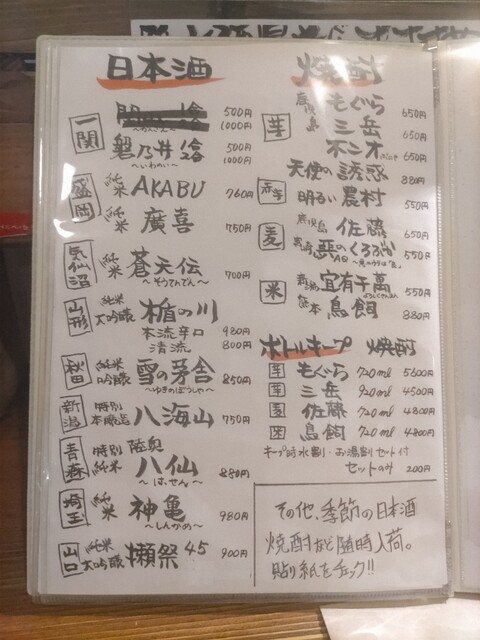 日本酒
一関
500円
1000円
磐乃井 1合 500円
1000円
～いわのい～
盛岡
純米 AKABU 760円
純米 廣喜 750円
気仙沼
純米 蒼天伝 700円
～そうてんでん～
山形
純米大吟醸 楯の川
本流辛口 980円
清流 800円
秋田
純米吟醸 雪の茅舎 850円
～ゆきのぼうしゃ～
新潟
特別本醸造 八海山 750円
青森
特別純米 陸奥八仙 880円
～はっせん～
埼玉
純米 神亀 980円
～しんかめ～
山口
純米大吟醸 獺祭 45 900円
焼酎
芋
鹿児島 もぐら 650円
三岳 650円
不二才 650円
天使の誘惑 880円
赤芋
明るい農村 550円
麦
鹿児島 佐藤 650円
悪のくろぶか 550円
米
新潟 宜有千萬 550円
熊本 鳥飼 880円
ボトルキープ 焼酎
芋 もぐら 720ml 5600円
芋 三岳 920ml 4500円
麦 佐藤 720ml 4800円
米 鳥飼 720ml 4800円
キープ時水割・お湯割セット付
セットのみ 200円
その他、季節の日本酒
焼酎など随時入荷。
貼り紙をチェック!!